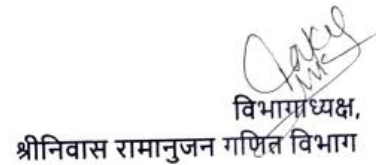 विभागाध्यक्ष,
श्रीनिवास रामानुजन गणित विभाग